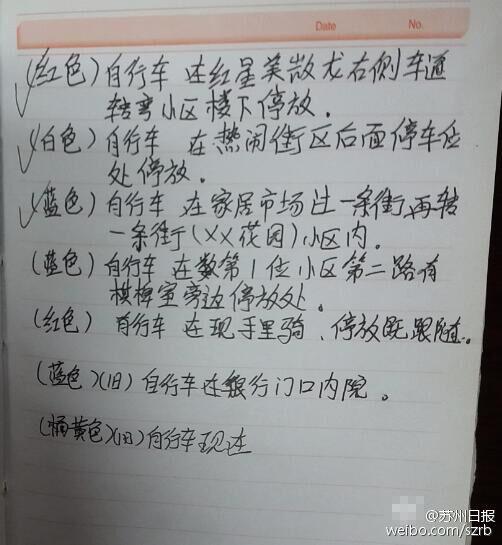 Date No.
(红色)自行车 在红星美凯龙右侧车道
转弯小区楼下停放。
(白色)自行车 在热闹街区后面停车位
处停放。
(蓝色)自行车 在家居市场过一条街,再转
一条街(XX花园)小区内。
(蓝色)自行车 在数第1位小区第二路有
棋牌室旁边停放处。
(红色) 自行车 在现手里骑、停放既跟随。
(蓝色)(旧)自行车在银行门口内院。
(橘黄色)(旧)自行车现在
@苏州日报
weibo.com/szrb